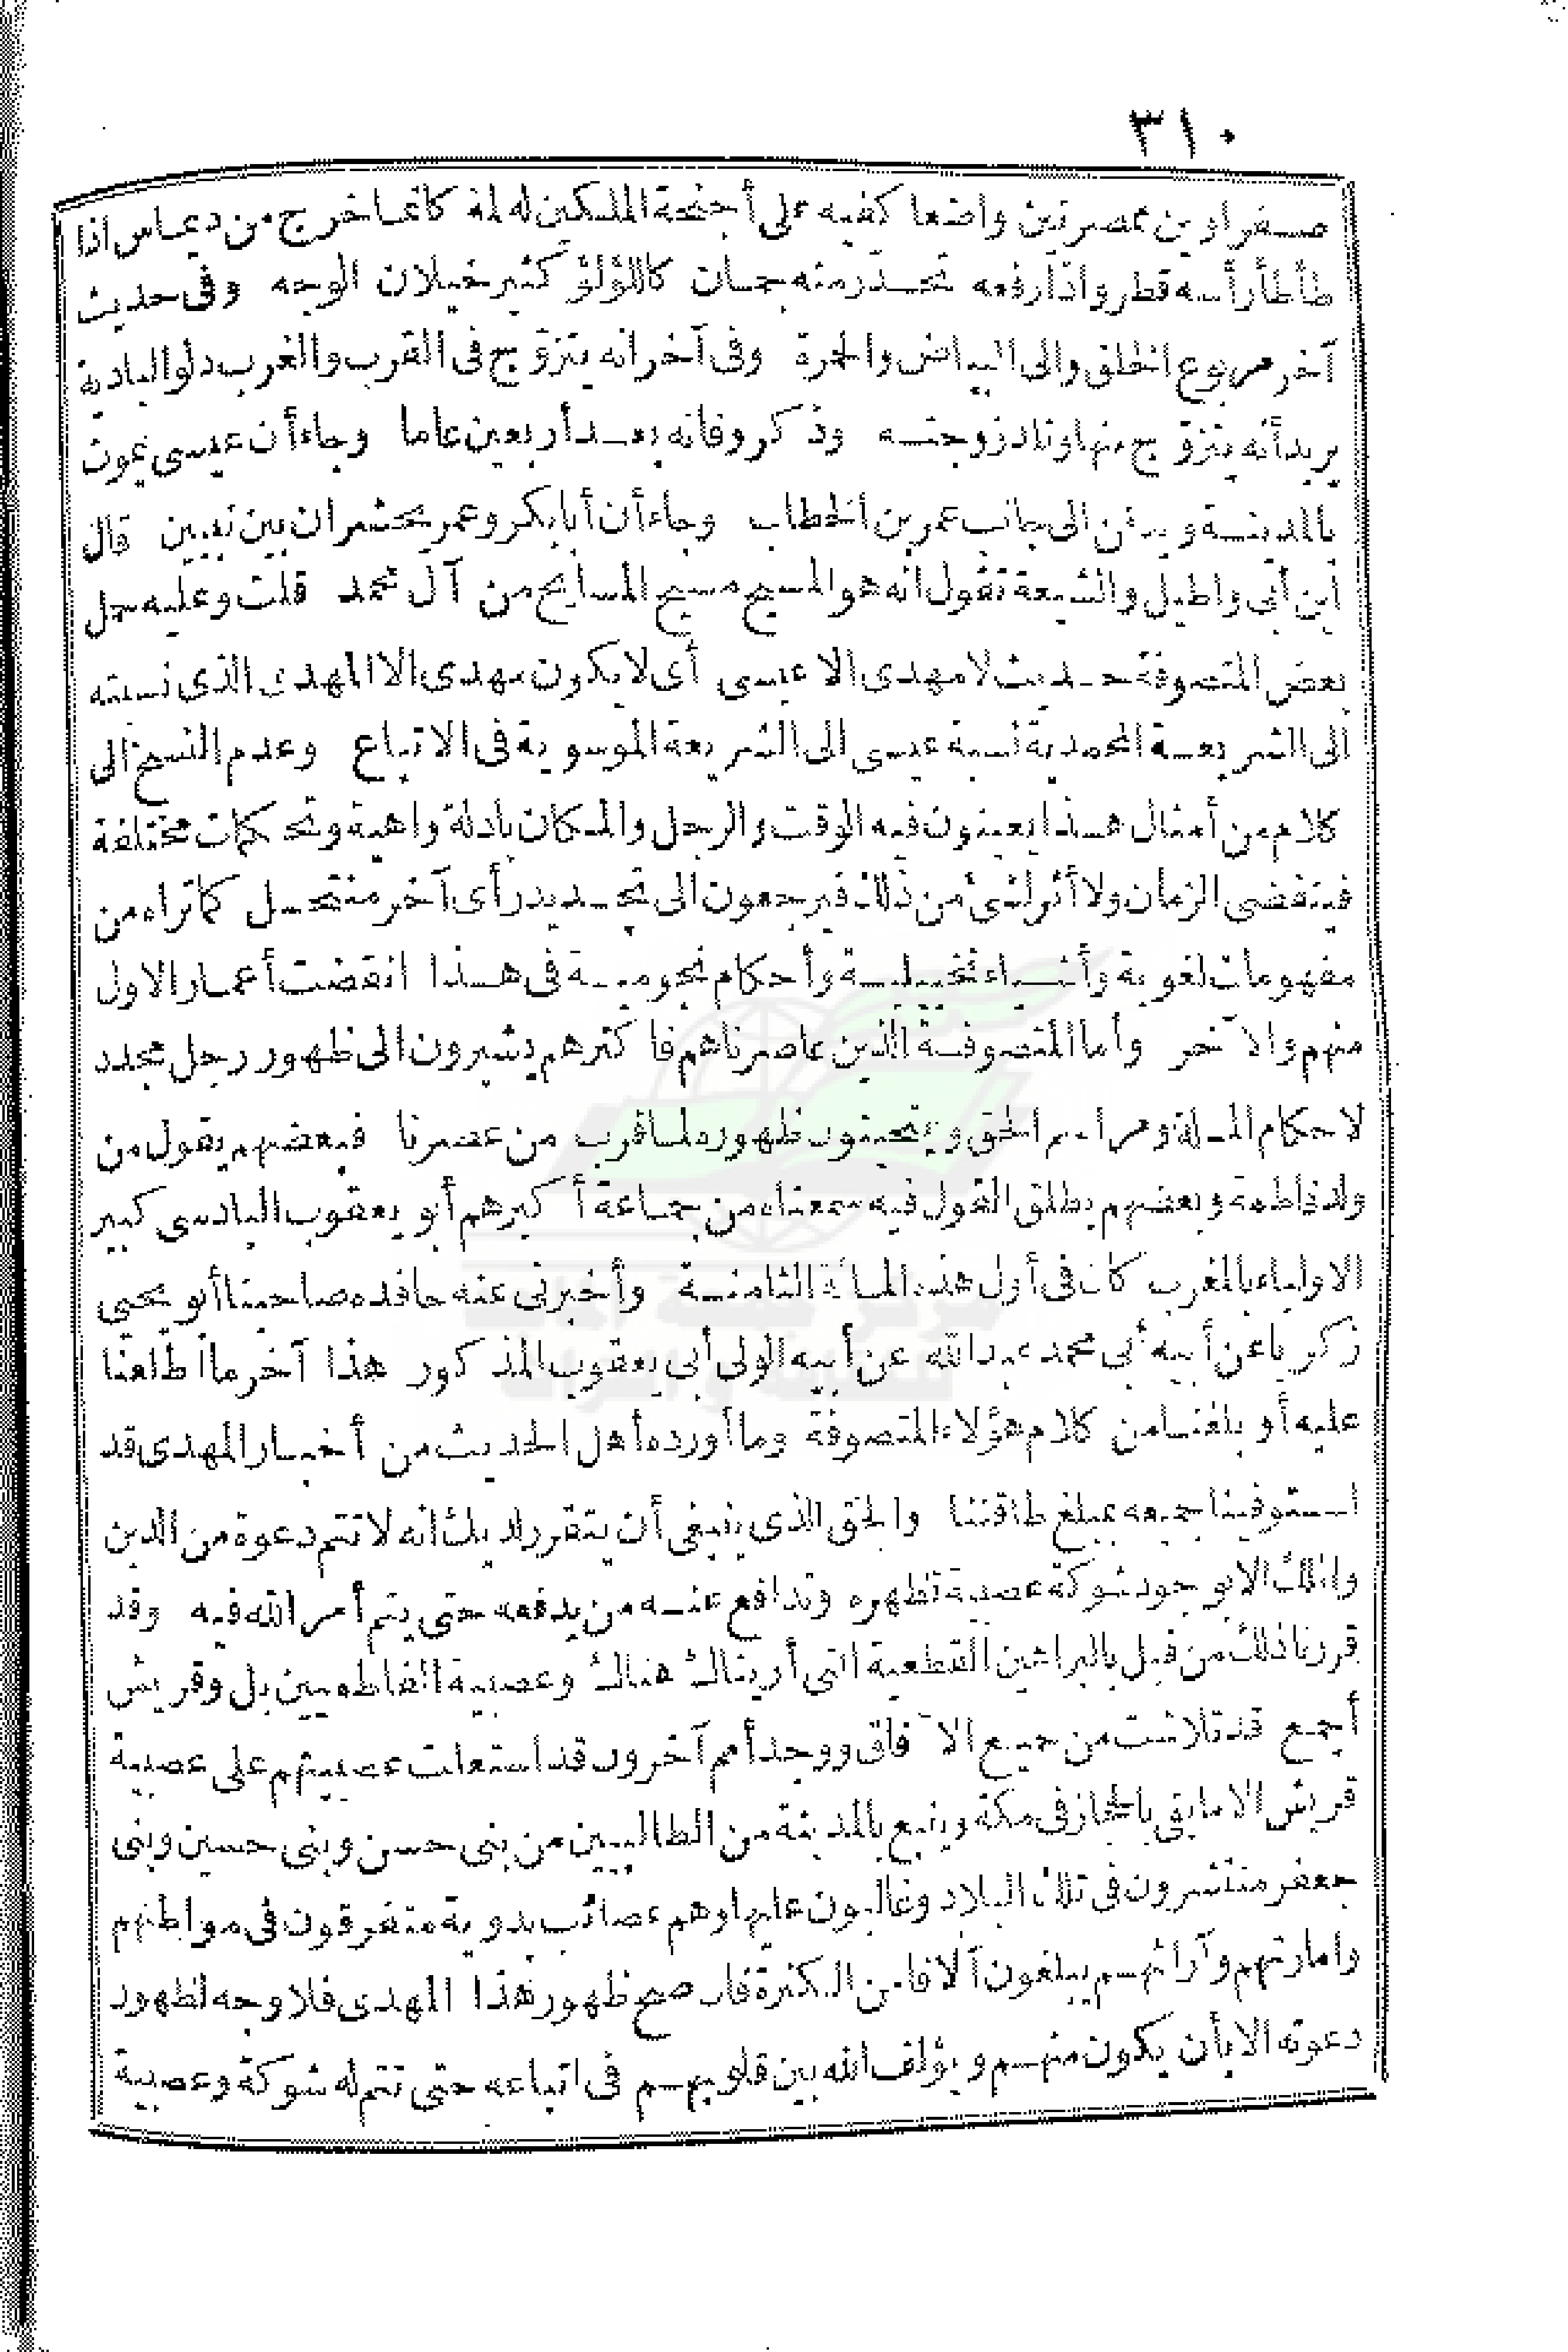 ٣١٠
صفراوين ممصرتين واضعا كفيه على أجنحة الملكين له لمة كانما خرج من ديماس اذا
طأطأ رأسه قطر واذا رفعه تحدر منه جمان كاللؤلؤ كثير خيلان الوجه وفى حديث
آخر مربوع الخلق والى البياض والحمرة وفى آخر انه يتزوّج فى الغرب والغرب دلو البادية
يريد أنه يتزوّج منها وتلد زوجته وذكر وفاته بعد أربعين عاما وجاء أن عيسى يموت
بالمدينة ويدفن الى جانب عمر بن الخطاب وجاء أن أبا بكر وعمر يحشران بين نبيين قال
ابن أبى واطيل والشيعة تقول انه هو المسيح مسيح المسايح من آل محمد قلت وعليه حمل
بعض المتصوفة حديث لا مهدى الا عيسى أى لا يكون مهدى الا المهدى الذى نسبته
الى الشريعة المحمدية نسبة عيسى الى الشريعة الموسوية فى الاتباع وعدم النسخ الى
كلام من أمثال هذا يعينون فيه الوقت والرجل والمكان بادلة واهية وتحكمات مختلفة
فينقضى الزمان ولا أثر لشئ من ذلك فيرجعون الى تجديد رأى آخر منتحل كما تراه من
مفهومات لغوية وأشياء تخييلية وأحكام نجومية فى هذا انقضت أعمار الاول
منهم والآخر وأما المتصوفة الذين عاصرناهم فاكثرهم يشيرون الى ظهور رجل مجدد
لاحكام الملة ومراسم الحق ويتحينون ظهوره لما قرب من عصرنا فبعضهم يقول من
ولد فاطمة وبعضهم يطلق القول فيه سمعناه من جماعة أكبرهم أبو يعقوب البادسى كبير
الاولياء بالمغرب كان فى أول هذه المائة الثامنة وأخبرنى عنه حافده صاحبنا أبو يحيى
زكريا عن أبيه أبى محمد عبد الله عن أبيه الولى أبى يعقوب المذكور هذا آخر ما اطلعنا
عليه أو بلغنا من كلام هؤلاء المتصوفة وما أورده أهل الحديث من أخبار المهدى قد
استوفينا جميعه بمبلغ طاقتنا والحق الذى ينبغى أن يتقرر لديك انه لا تتم دعوة من الدين
والملك الا بوجود شوكة عصبية تظهره وتدافع عنه من يدفعه حتى يتم أمر الله فيه وقد
قررنا ذلك من قبل بالبراهين القطعية التى أريناك هناك وعصبية الفاطميين بل وقريش
أجمع قد تلاشت من جميع الآفاق ووجد أمم آخرون قد استعلت عصبيتهم على عصبية
قريش الا ما بقى بالحجاز فى مكة وينبع بالمدينة من الطالبيين من بنى حسن وبنى حسين وبنى
جعفر منتشرون فى تلك البلاد وغالبون عليها وهم عصائب بدوية متفرقون فى مواطنهم
وامارتهم وآرائهم يبلغون آلافا من الكثرة فان صح ظهور هذا المهدى فلا وجه لظهور
دعوته الا بأن يكون منهم ويؤلف الله بين قلوبهم فى اتباعه حتى تتم له شوكة وعصبية